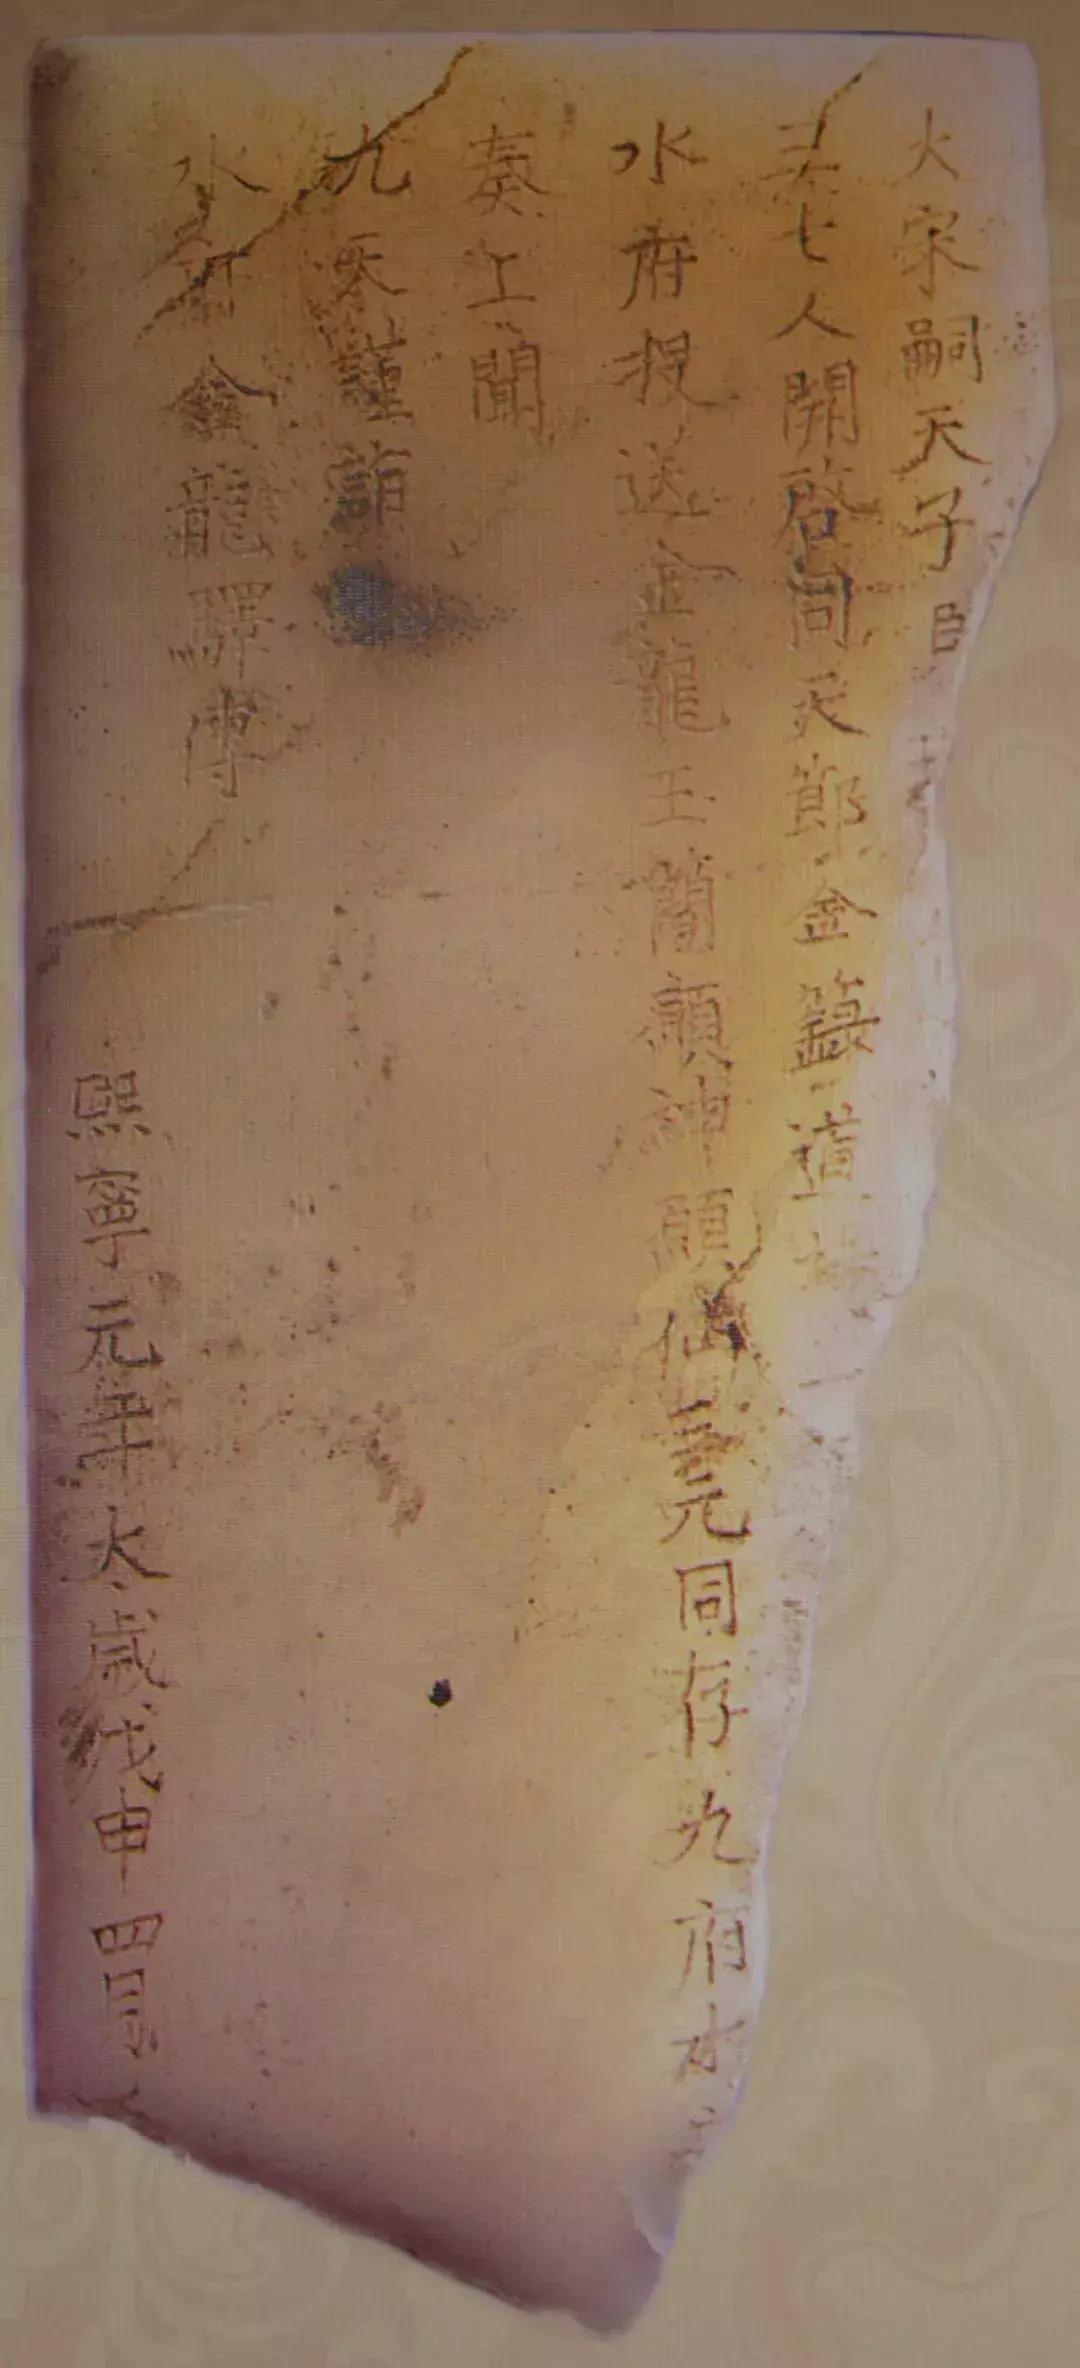 大宋嗣天子臣
七人開啓同天節金籙道
水府投送金龍玉簡願神願仙三元同存九府水
奏上聞
九天謹詣
水府金龍驛傳
熙寧元年太歲戊申四月